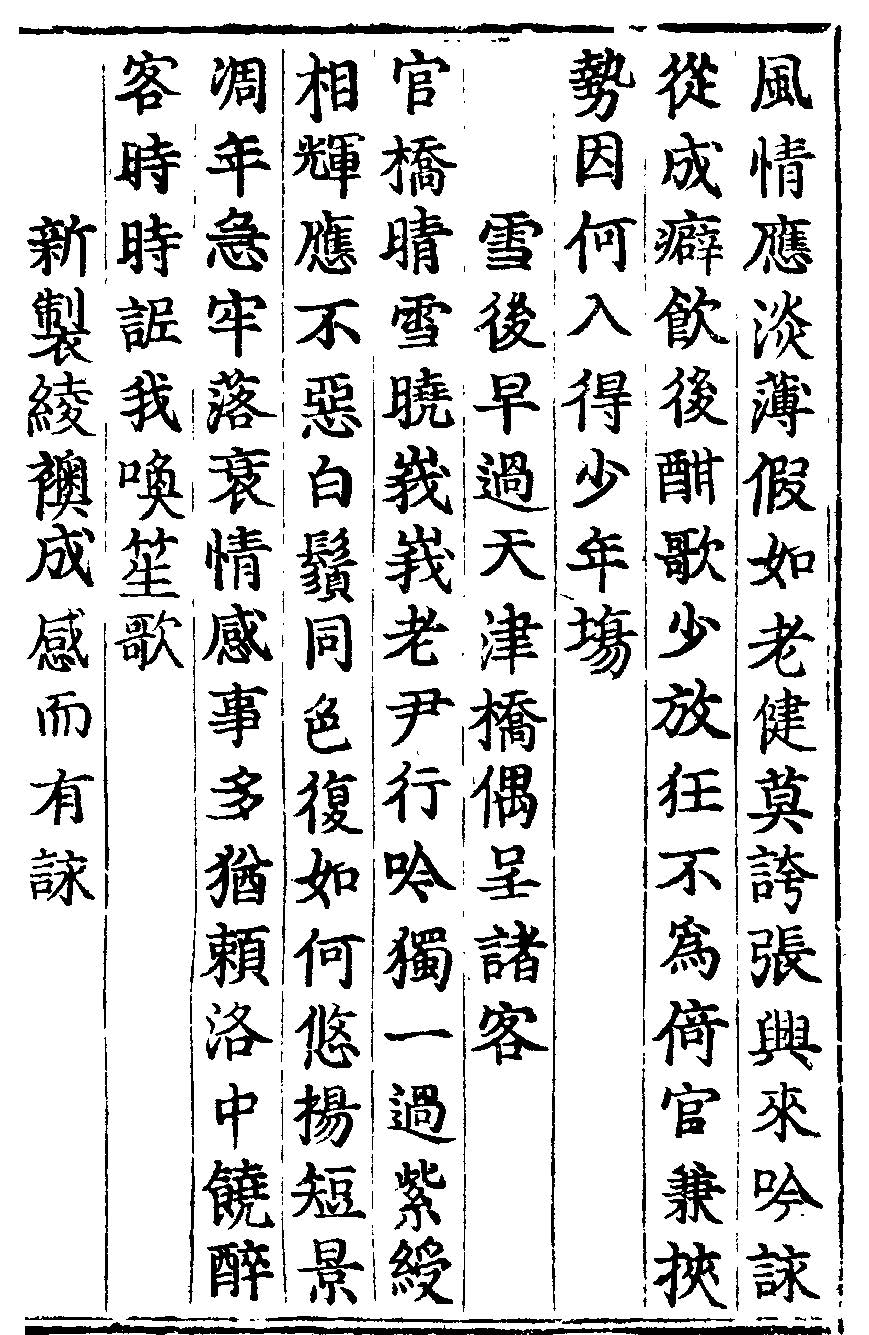 風情應淡薄假如老健莫誇張興來吟詠
從成癖飲後酣歌少放狂不爲倚官兼挾
勢因何入得少年塲
雪後早過天津橋偶呈諸客
官橋晴雪曉峩峩老尹行吟獨一過紫綬
相輝應不惡白鬚同色復如何悠揚短景
凋年急牢落衰情感事多猶頼洛中饒醉
客時時䛏我喚笙歌
新製綾襖成感而有詠